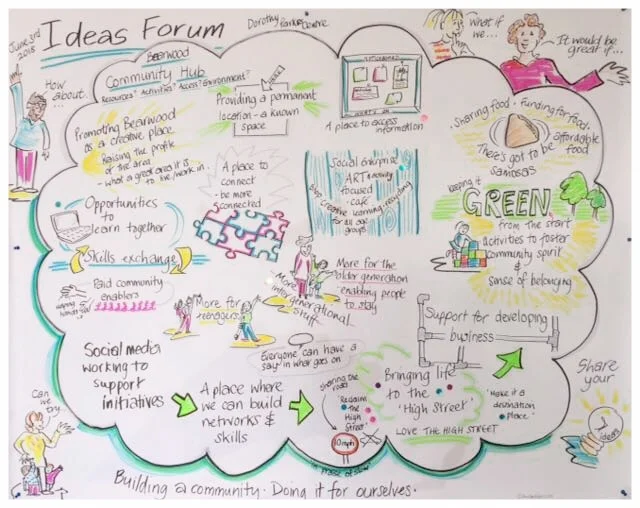 June 3rd
2018
Ideas Forum
Dorothy
Parkes Centre
What if
we...
It would be
great if...
How
about...
Bearwood
Community Hub
Resources? Activities? Access? Environment?
Promoting Bearwood
as a creative place
Raising the profile
of the area
- what a great area it is
to live/work in.
Providing a permanent
location - a known
space
WHAT'S ON
A place to access
information
Sharing food · Funding for food.
affordable
food
There's got to be
samosas
A place to
connect
- be more
connected
Social enterprise
ART + activity
focused
cafe
Creative learning - recycling
for all age
groups
keeping it
GREEN
from the start
activities to foster
community spirit
&
sense of belonging
Opportunities
to
learn together
Skills exchange
Paid community
enablers
More for
teenagers
More
intergenerational
stuff
More for the
older generation
- enabling people
to stay
Support for developing
business
Everyone can have a
say in what goes on
Social media
working to
support
initiatives
A place where
we can build
networks &
skills
sharing the
road
"Reclaim
the
High
Street"
10mph
Bringing life
to the
'High Street'
LOVE THE HIGH STREET
'Make it a
destination
place'
Can
we
try..
Share
your
ideas
Building a community · Doing it for ourselves.